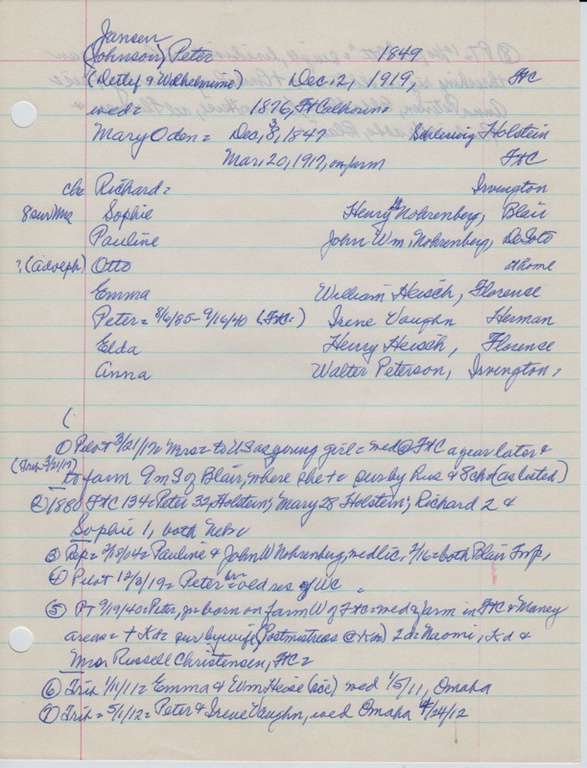 Jansen
(Johnson) Peter 1849
(Detlef & Wilhelmine) Dec. 2, 1919, FtC
wed = 1876, Ft Calhoun =
Mary Oden = Dec, 8, 1847 Schleswig Holstein
Mar. 20, 1917, on farm FtC
Richard = Irvington
8 sur/Ma Sophie Henry Nohrenberg, Blair
Pauline John Wm. Nohrenberg, DeSoto
? (Adolph) Otto at home
Emma William Heisch, Florence
Peter = 8/6/85 - 9/16/40 (FtC) Irene Vaughn Herman
Elda Henry Heisch, Florence
Anna Walter Peterson, Irvington,
(
① Pilot 3/21/17 = Mrs = to US as young girl = wed @ FtC a year later &
(Trib 3/21/17) to farm 9 m S of Blair, where she + = sur by hus & 8 chd (as listed)
② 1880 FtC 134 = Peter 32, Holstein; Mary 28 Holstein; Richard 2 &
Sophie 1, both Nebr
③ Rep = 2/18/04 = Pauline & John W Nohrenberg, wed lic, 2/16 = both Blair Twp,
④ Pilot 12/3/19 = Peter = old res of WC
⑤ PT 9/19/40 = Peter, Jr born on farm W of FtC = wed & farm in FtC & Maney
areas = + Kd = sur by wife (Postmistress @ Kn) 2 d = Naomi, Kd &
Mrs Russell Christensen, FtC =
⑥ Trib 1/11/11 = Emma & Wm Heise (sic) wed 1/5/11, Omaha
⑦ Trib = 5/1/12 = Peter & Irene Vaughn, wed Omaha 4/24/12